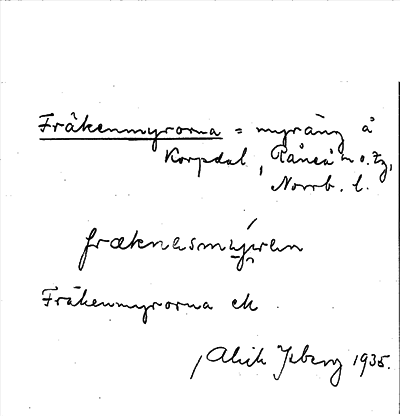 Fräkenmyrorna = myräng å
Korpdal, Råneå
Norrb. l.
fræknesmýran
Fräkenmyrorna ek
Alrik Ysberg 1935.